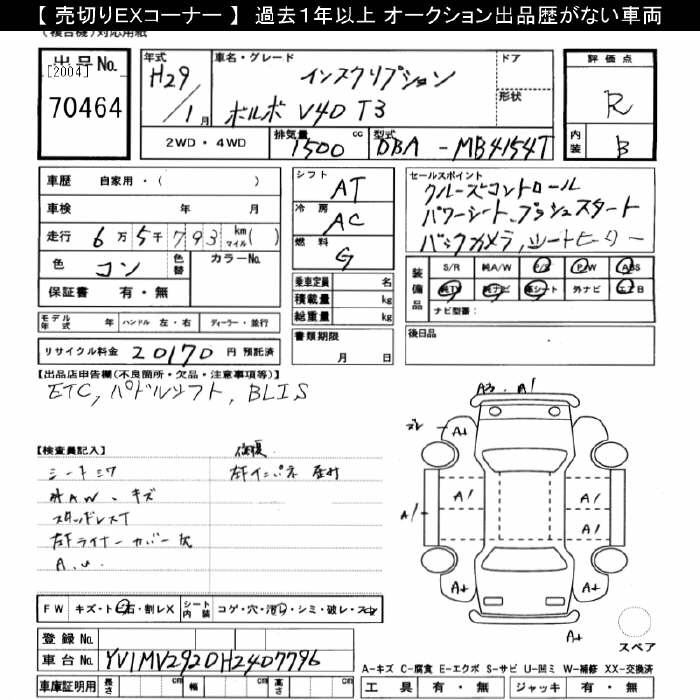 【 売切りEXコーナー 】 過去１年以上 オークション出品歴がない車両
(複合機) 対応用紙
出品No.
[2004]
70464
年式
H29
/1月
車名・グレード
インスクリプション
ボルボ V40 T3
ドア
形状
評価点
R
内装
B
2WD・4WD
排気量
1500 cc
型式
DBA - MB4154T
車歴 自家用・( )
車検 年 月
走行 6万5千793 km マイル( )
色 コン
色替
カラーNo.
保証書 有・無
シフト AT
冷房 AC
燃料 G
乗車定員 名
積載量 kg
総重量 kg
書類期限
月 日
セールスポイント
クルーズコントロール
パワーシート、プッシュスタート
バックカメラ, シートヒーター
装備品
S/R 純A/W P/S P/W ABS
純TV 純ナビ 革シート 外ナビ エアB
ナビ型番：
後日品
モデル年式 年 ハンドル 左・右 ディーラー・並行
リサイクル料金 20170 円 預託済
【出品店申告欄(不良箇所・欠品・注意事項等)】
ETC, パドルシフト, BLIS
【検査員記入】
シートシワ
AW、キズ
スタッドレスT
左Fライナーカバー欠
A.U
修復
左Fインパネ
A3. A1
A1
A1
A1
A1
A1
A1
A1
A1
A1
スペア
FW キズ・ト石・割レX
シート内装 コゲ・穴・汚レ・シミ・破レ・スレ
登録No.
車台No. YV1MV292DH2407796
車庫証明用 長さ cm 幅 cm 高さ cm
A-キズ C-腐食 E-エクボ S-サビ U-凹ミ W-補修 XX-交換済
工具 有・無 ジャッキ 有・無